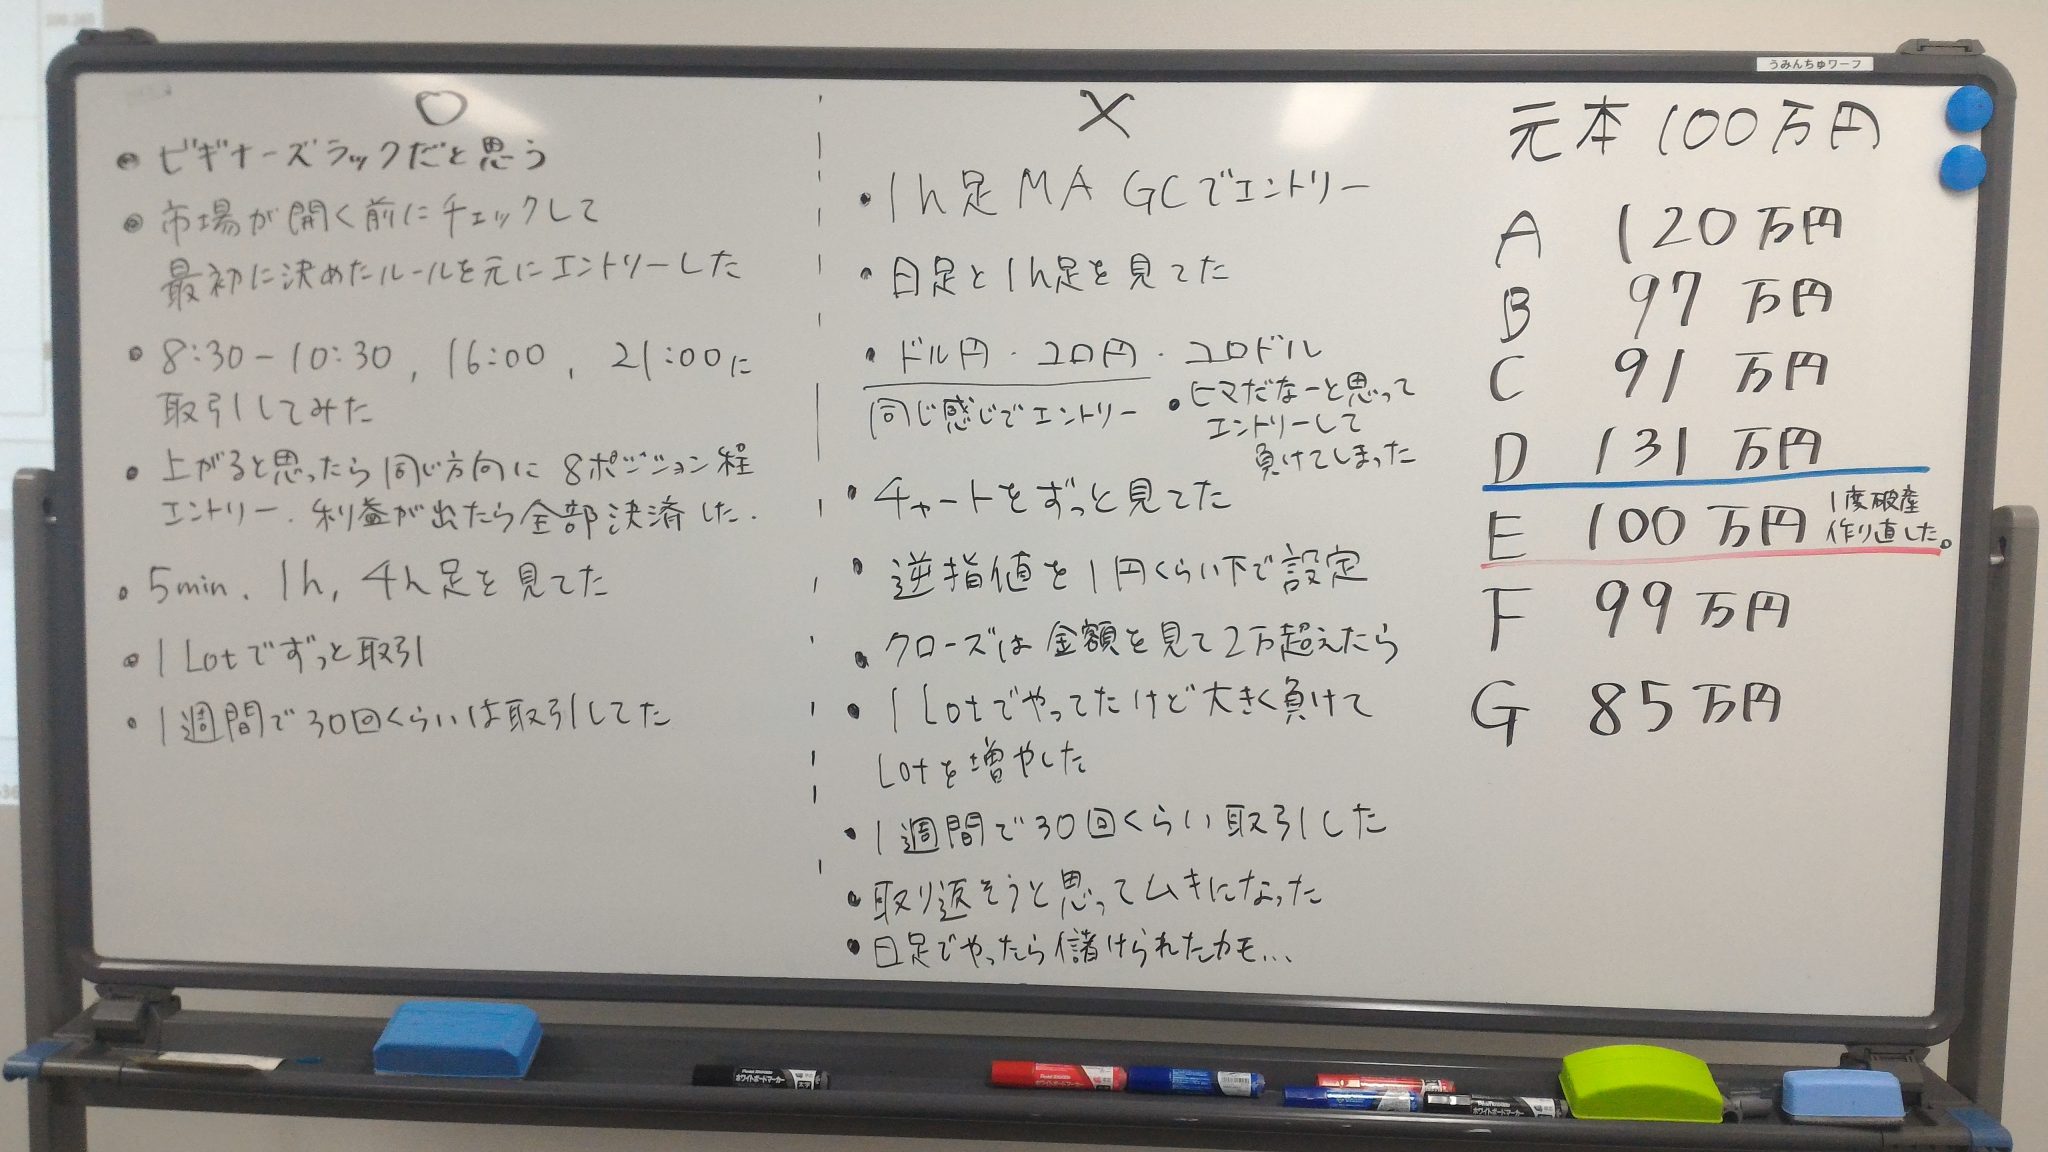 うみんちゅワーフ
○
• ビギナーズラックだと思う
• 市場が開く前にチェックして
最初に決めたルールを元にエントリーした
• 8:30-10:30, 16:00, 21:00に
取引してみた
• 上がると思ったら同じ方向に8ポジション程
エントリー.利益が出たら全部決済した.
• 5min. 1h, 4h足を見てた
• 1Lotでずっと取引
• 1週間で30回くらいは取引してた
×
• 1h足 MA GCでエントリー
• 日足と1h足を見てた
• ドル円・ユロ円・ユロドル
同じ感じでエントリー
• ヒマだなーと思って
エントリーして
負けてしまった
• チャートをずっと見てた
• 逆指値を1円くらい下で設定
• クローズは金額を見て2万超えたら
• 1Lotでやってたけど大きく負けて
Lotを増やした
• 1週間で30回くらい取引した
• 取り返そうと思ってムキになった
• 日足でやったら儲けられたカモ...
元本100万円
A 120万円
B 97万円
C 91万円
D 131万円
E 100万円 1度破産
作り直した。
F 99万円
G 85万円
ホワイトボードマーカー
ホワイトボードマーカー